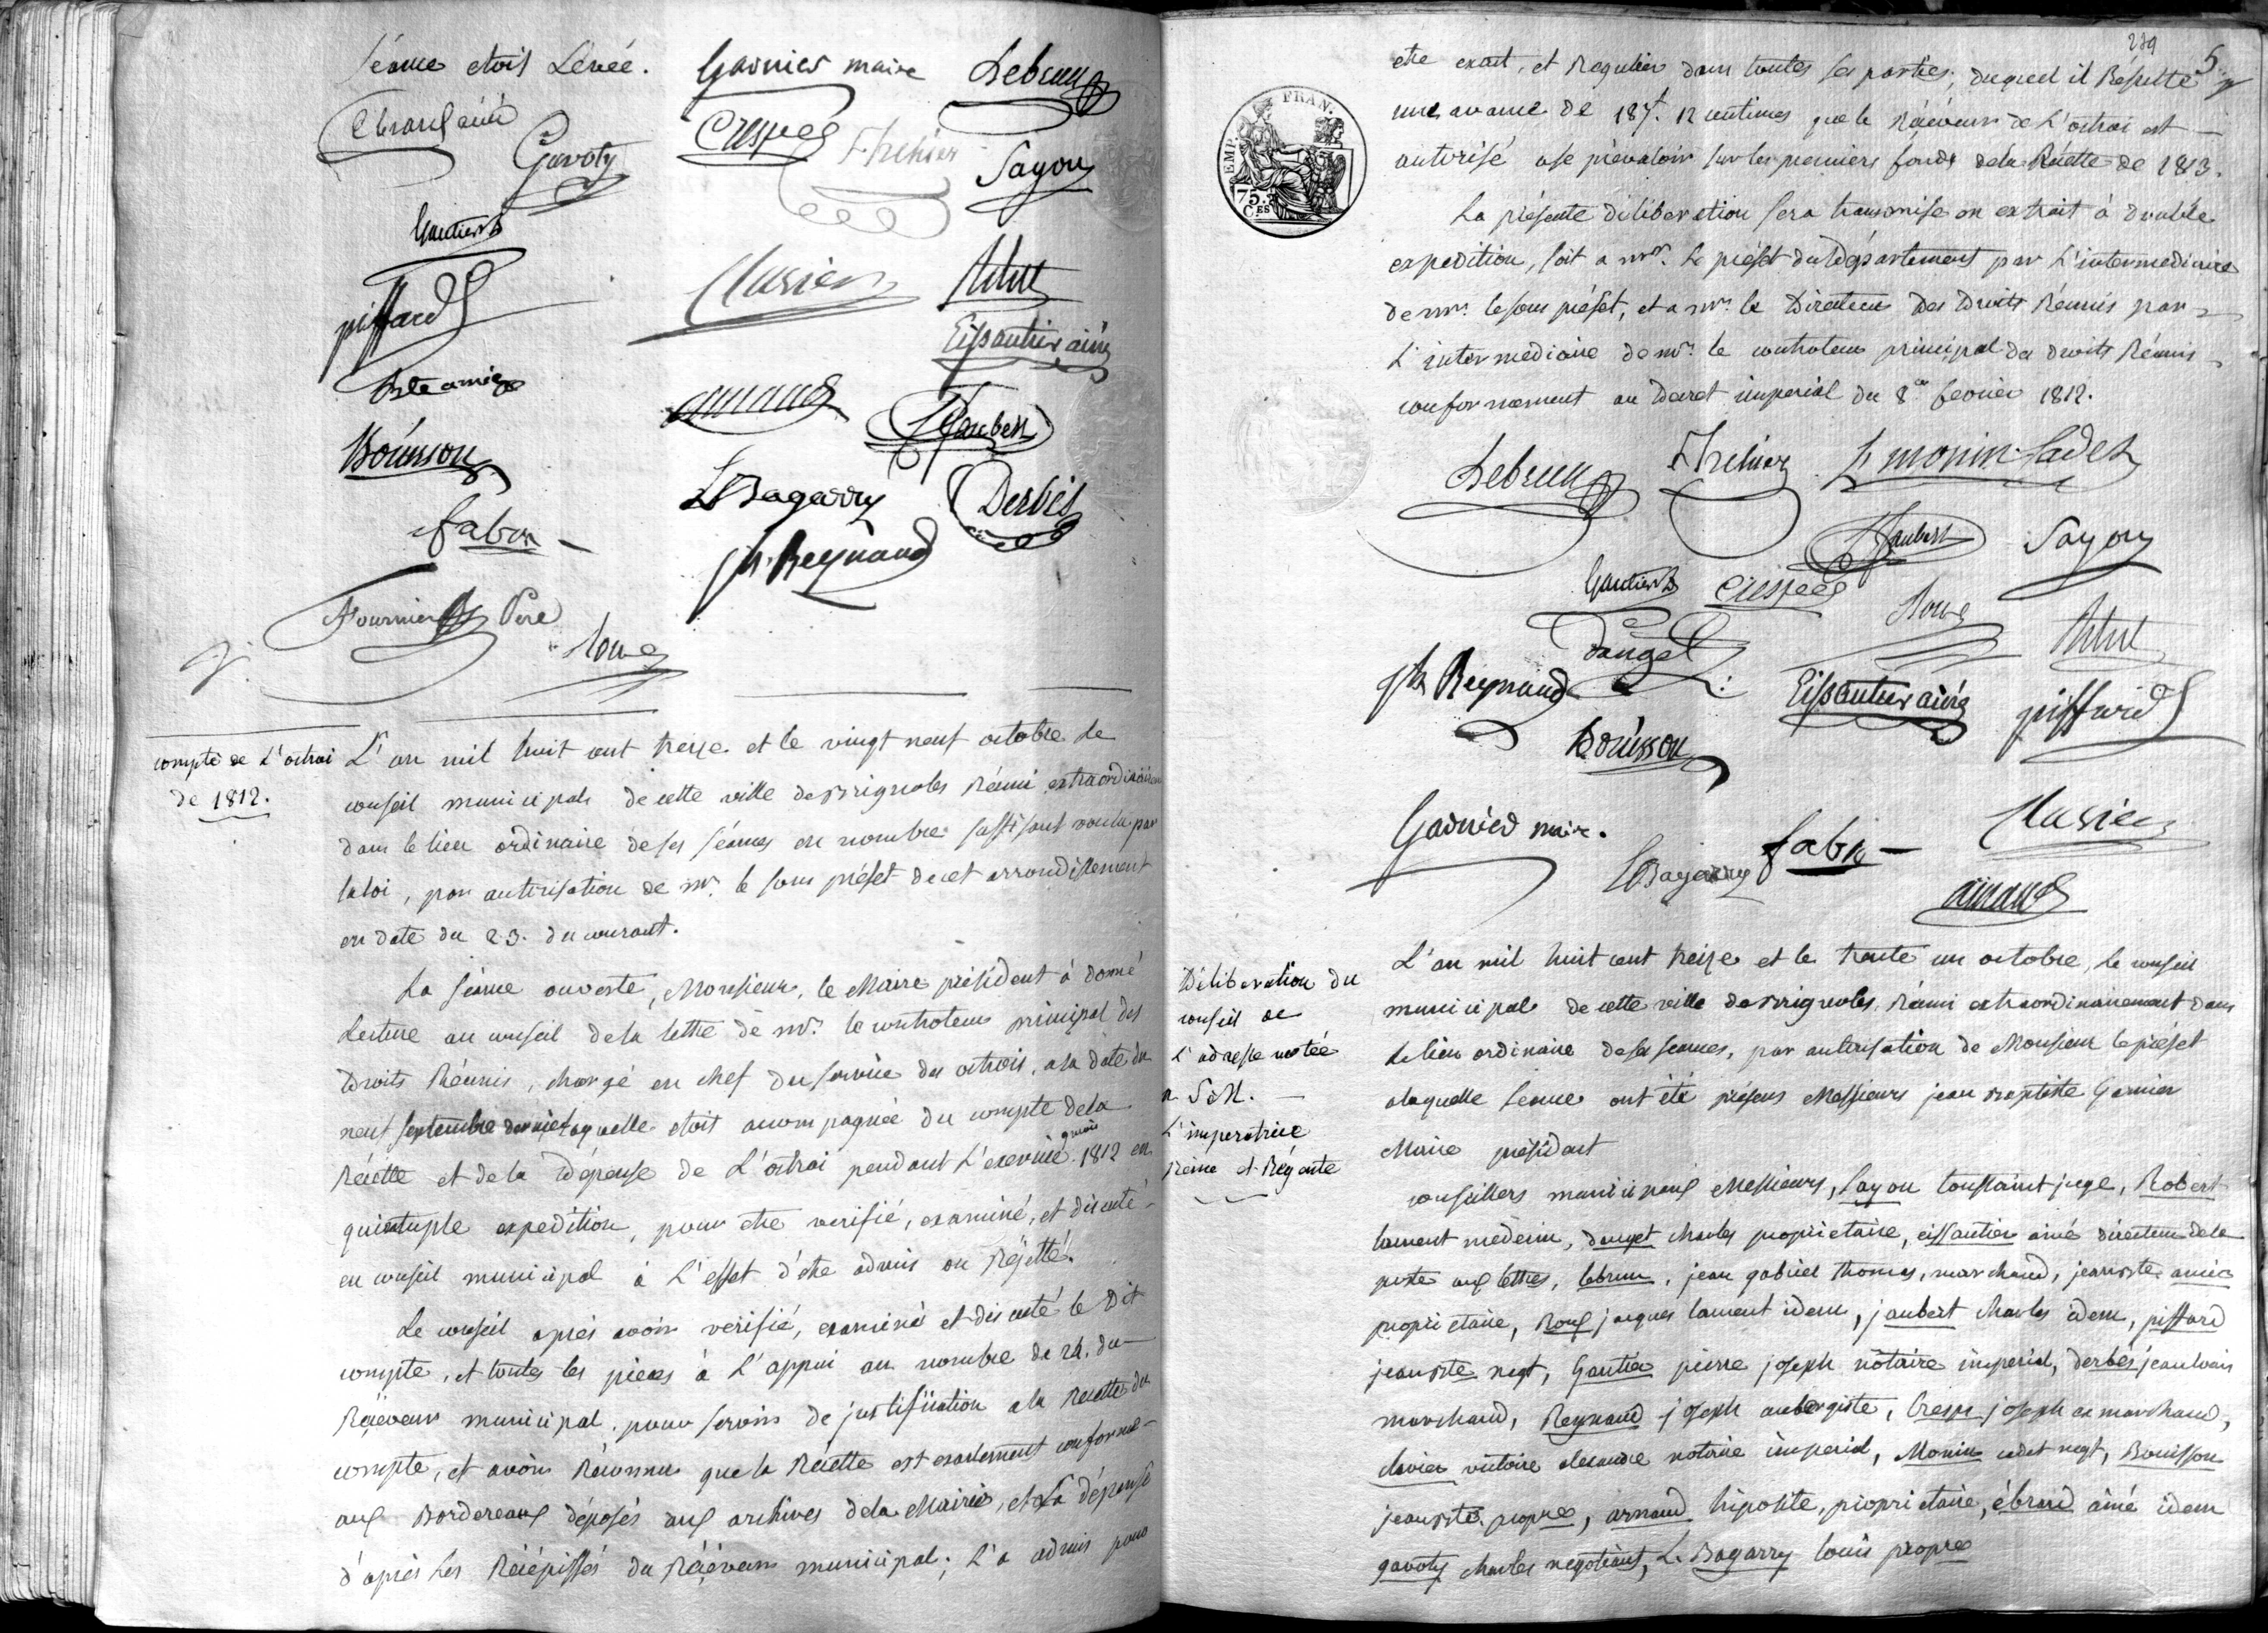 Séance etoit Levée.
Garnier maire
Lebrun
Ebrard ainé
Gavoty
Crespe
Sayou
Gautier
Clavier
piffard
Eissautier ainé
Bte amic
arnaud
Jaubert
Bouisson
L Bagarry
Derbès
fabre
jh. Reynaud
Fournier Pere
Roux
compte de L'octroi
de 1812.
L'an mil huit cent treize et le vingt neuf octobre le
conseil municipal de cette ville de Brignoles Réuni extraordinairem
dans le lieu ordinaire de ses séances en nombre suffisant voulu par
la loi, par autorisation de mr. le sous préfet de cet arrondissement
en date du 23. du courant.
La séance ouverte, Monsieur, le Maire président à donné
Lecture au conseil de la lettre de mr. le controleur principal des
Droits Réunis, chargé en chef du service des octrois, a la date du
neuf septembre dernier laquelle etoit accompagnée du compte de la
Récette et de la Dépense de L'octroi pendant L'exercice 1812 en
quintuple expedition, pour etre verifié, examiné, et discuté
en conseil municipal à L'effet d'étre admis ou Réjetté.
Le conseil aprés avoir verifié, examiné et discuté le Dit
compte, et toutes les pieces à L'appui au nombre de 24. du
Réceveur municipal. pour servir de justification a la Recette du
compte, et avoir Réconnu que la Récette est exactement conforme
aux Bordereaux déposés aux archives de la Mairie, et La dépense
d'aprés Les Récépissés du Réceveur municipal; L'a admis pour
239 5
etre exact, et Regulier dans toutes ses parties; duquel il Résulte
une avance de 187f. 12 centimes que le Réceveur de L'octroi est
autorisé a se prévaloir sur les premiers fonds de la Récette de 1813.
La présente déliberation sera transmise en extrait à double
expedition, soit a mr. Le préfet du Département par L'intermediaire
de mr. le sous préfet, et a mr. le Directeur Des Droits Réunis par
L'intermediaire de mr. le controleur principal des droits Réunis
conformement au Decret imperial du 8e fevrier 1812.
EMP. FRAN.
75.
CES
Lebrun
monin Cadet
Jaubert
Sayou
Gautier
Crespe
Roux
Dauget
jh Reynaud
Eissautier ainé
piffard
Bouisson
Garnier maire.
Clavier
L Bagarry
fabre
arnaud
Déliberation du
conseil de
L'adresse votée
a S.M.
L'imperatrice
Reine et Régente
L'an mil huit cent treize et le trente un octobre, le conseil
municipal de cette ville de Brignoles, Réuni extraordinairement dans
Le lieu ordinaire de ses seances, par autorisation de Monsieur le préfet
a laquelle seance ont été présens Messieurs jean Baptiste Garnier
Maire président
conseillers municipaux Messieurs, Sayou toussaint juge, Robert
laurent médecin, dauget charles proprietaire, eissautier ainé directeur de la
poste aux lettres, lebrun, jean gabriel thomas, marchand, jean bte amic
propriétaire, Roux jacques laurent idem, jaubert charles idem, piffard
jean bte negt, Gautier pierre joseph notaire imperial, derbès jean louis
marchand, Reynaud joseph aubergiste, Crespe joseph ex marchand,
clavier victoire alexandre notaire imperial, Monin cadet negt, Bouisson
jean bte, propre, arnaud hipolite, propriétaire, ébrard ainé idem
gavoty charles negotiant, L. Bagarry louis propre